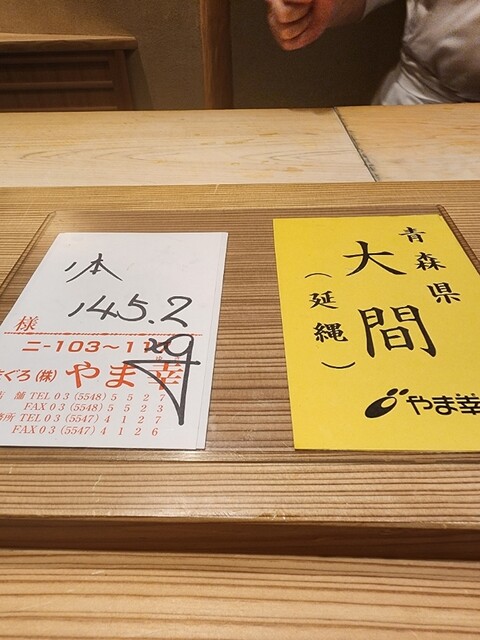 1本
145.2
様
ニ-103~11
まぐろ(株) やま幸
舗 TEL 03 (5548) 5527
FAX 03 (5548) 5523
務所 TEL 03 (5547) 4127
FAX 03 (5547) 4126
青森県
大間
(延縄)
やま幸